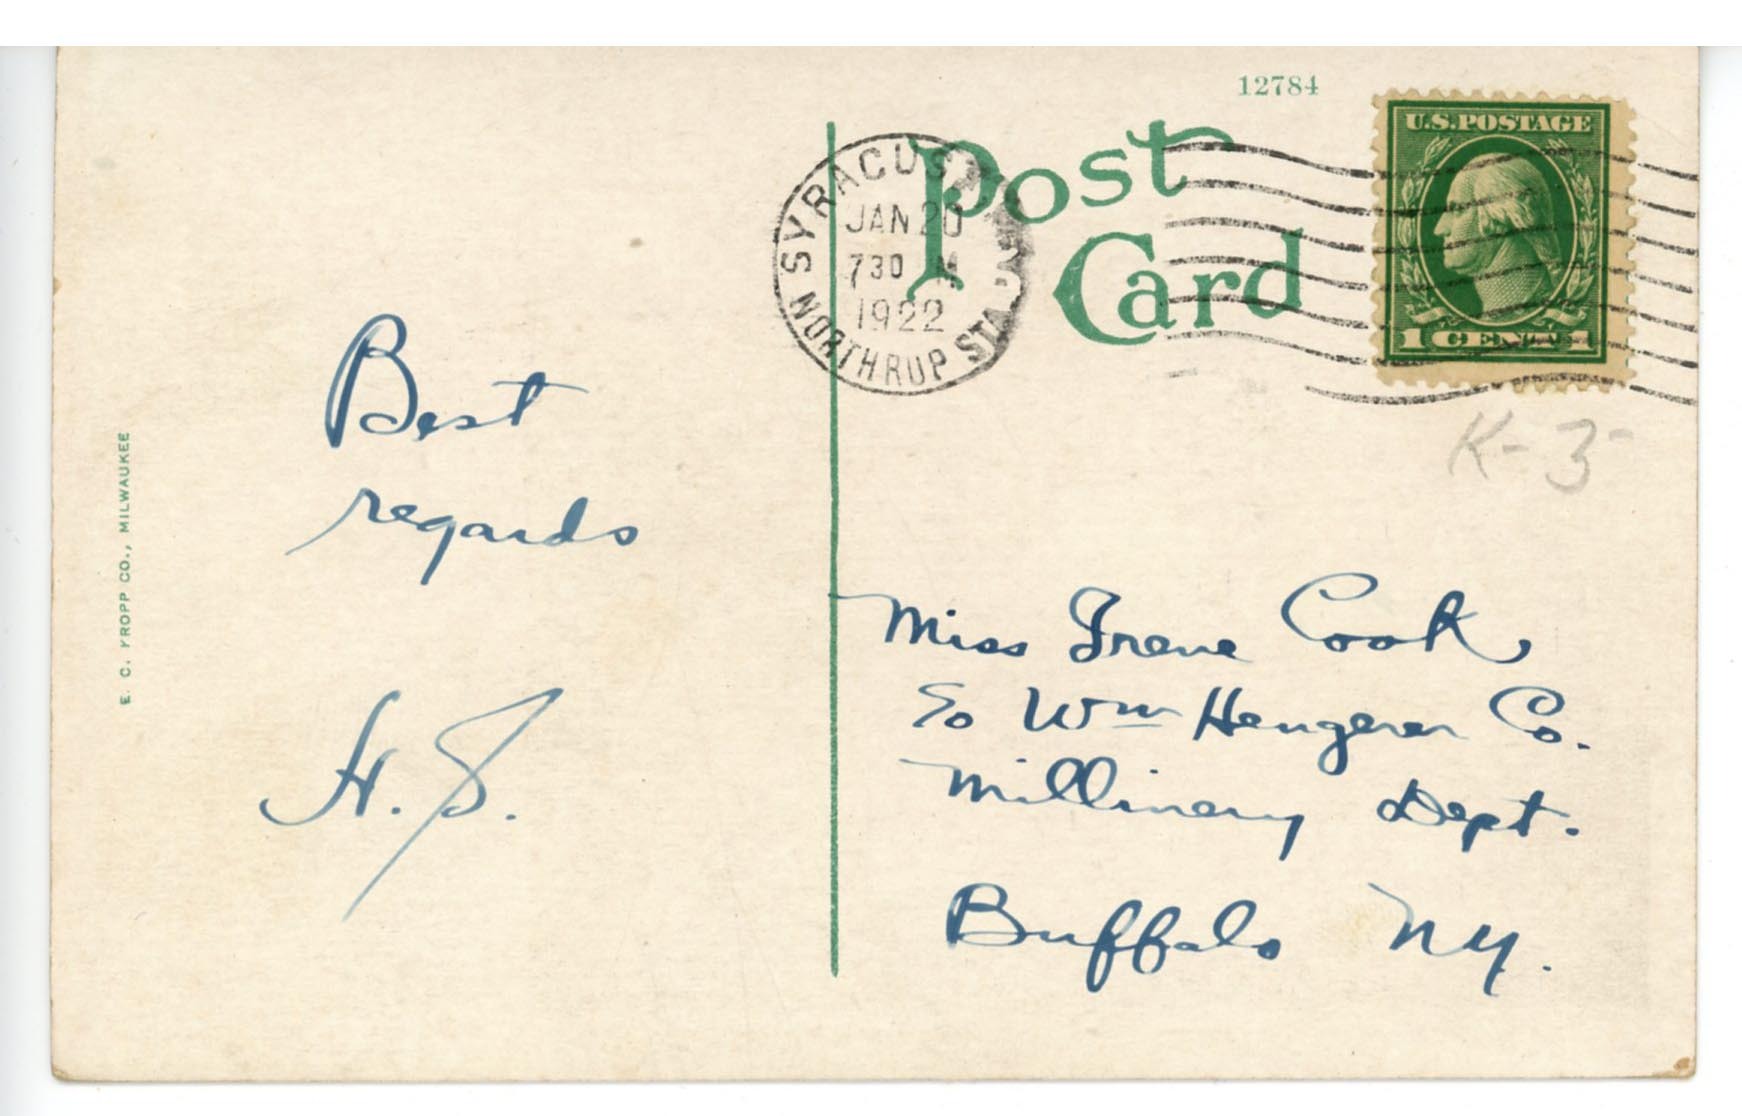 12784
U.S. POSTAGE
1 CENT 1
Post
Card
SYRACUSE
JAN 20
730 M
1922
NORTHRUP STA.
K-3-
Best
regards
H. S.
Miss Irene Cook,
c/o Wm Hengerer Co.
Millinery Dept.
Buffalo NY.
E. C. KROPP CO., MILWAUKEE